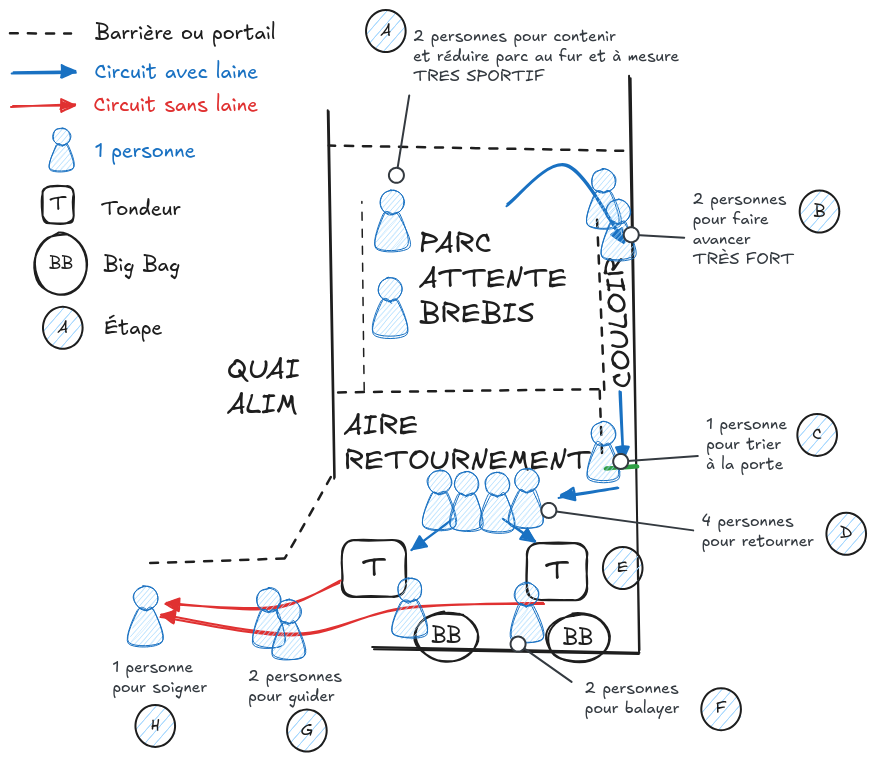 Barrière ou portail
Circuit avec laine
Circuit sans laine
1 personne
T
Tondeur
BB
Big Bag
A
Étape
A
2 personnes pour contenir
et réduire parc au fur et à mesure
TRES SPORTIF
2 personnes
pour faire
avancer
TRÈS FORT
B
PARC
ATTENTE
BREBIS
COULOIR
QUAI
ALIM
AIRE
RETOURNEMENT
1 personne
pour trier
à la porte
C
4 personnes
pour retourner
D
T
T
E
BB
BB
1 personne
pour soigner
H
2 personnes
pour guider
G
2 personnes
pour balayer
F